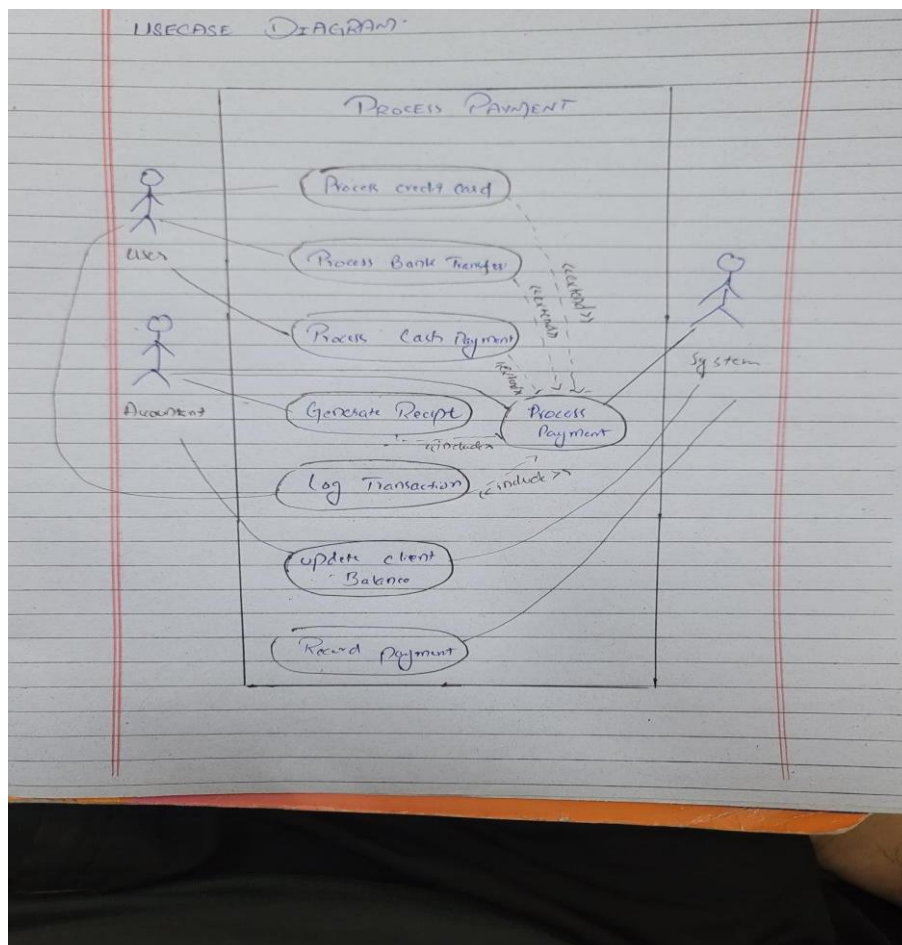 USECASE DIAGRAM
PROCESS PAYMENT
Process credit card
User
Process Bank Transfer
<<extend>>
<<extend>>
Process Cash Payment
<<extend>>
System
Accountent
Generate Recipt
Process
Payment
<<include>>
Log Transaction
<<include>>
update client
Balance
Record payment